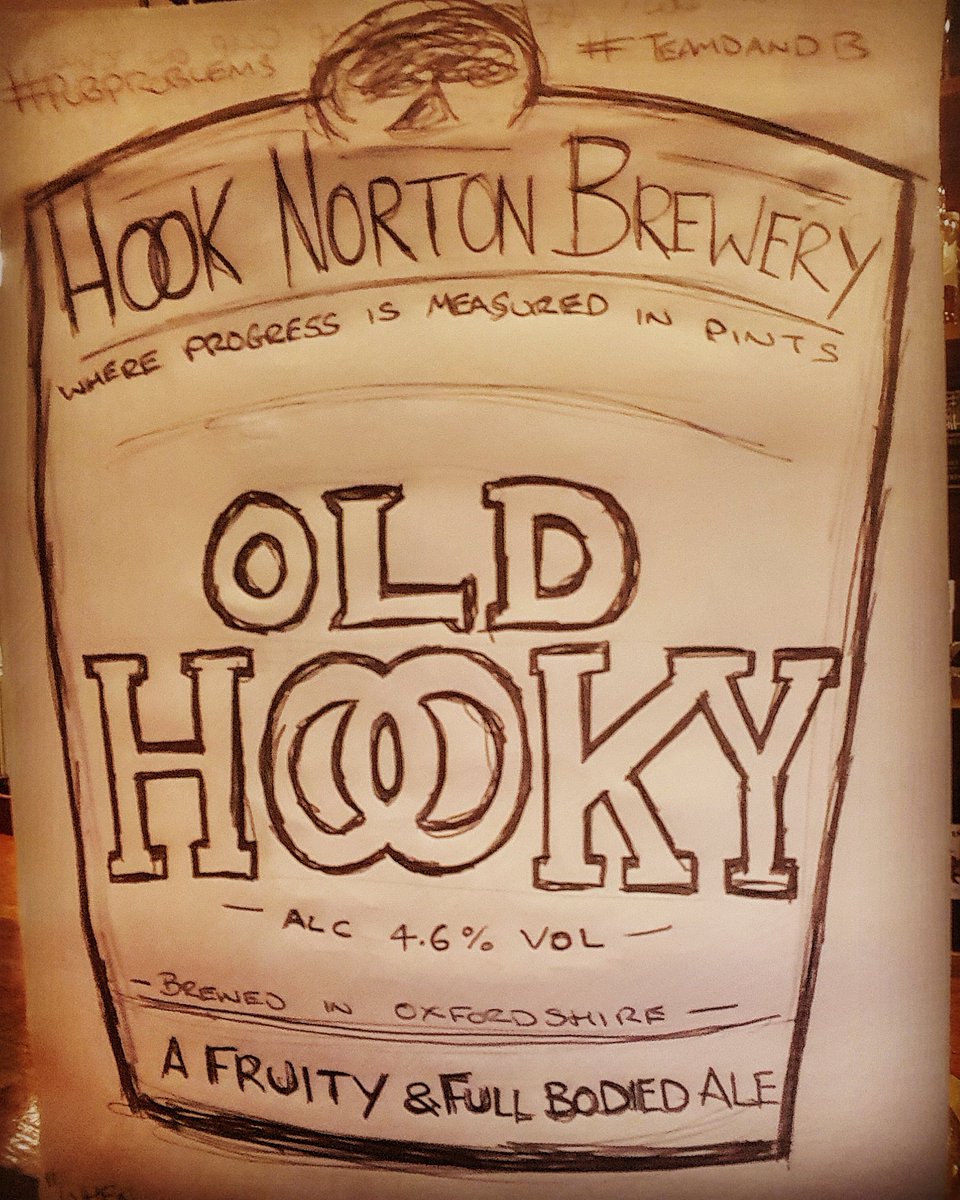 #PUBPROBLEMS
# TEAMDANDB
HOOK NORTON BREWERY
WHERE PROGRESS IS MEASURED IN PINTS
OLD
HOOKY
— ALC 4.6% VOL —
— BREWED IN OXFORDSHIRE —
A FRUITY & FULL BODIED ALE